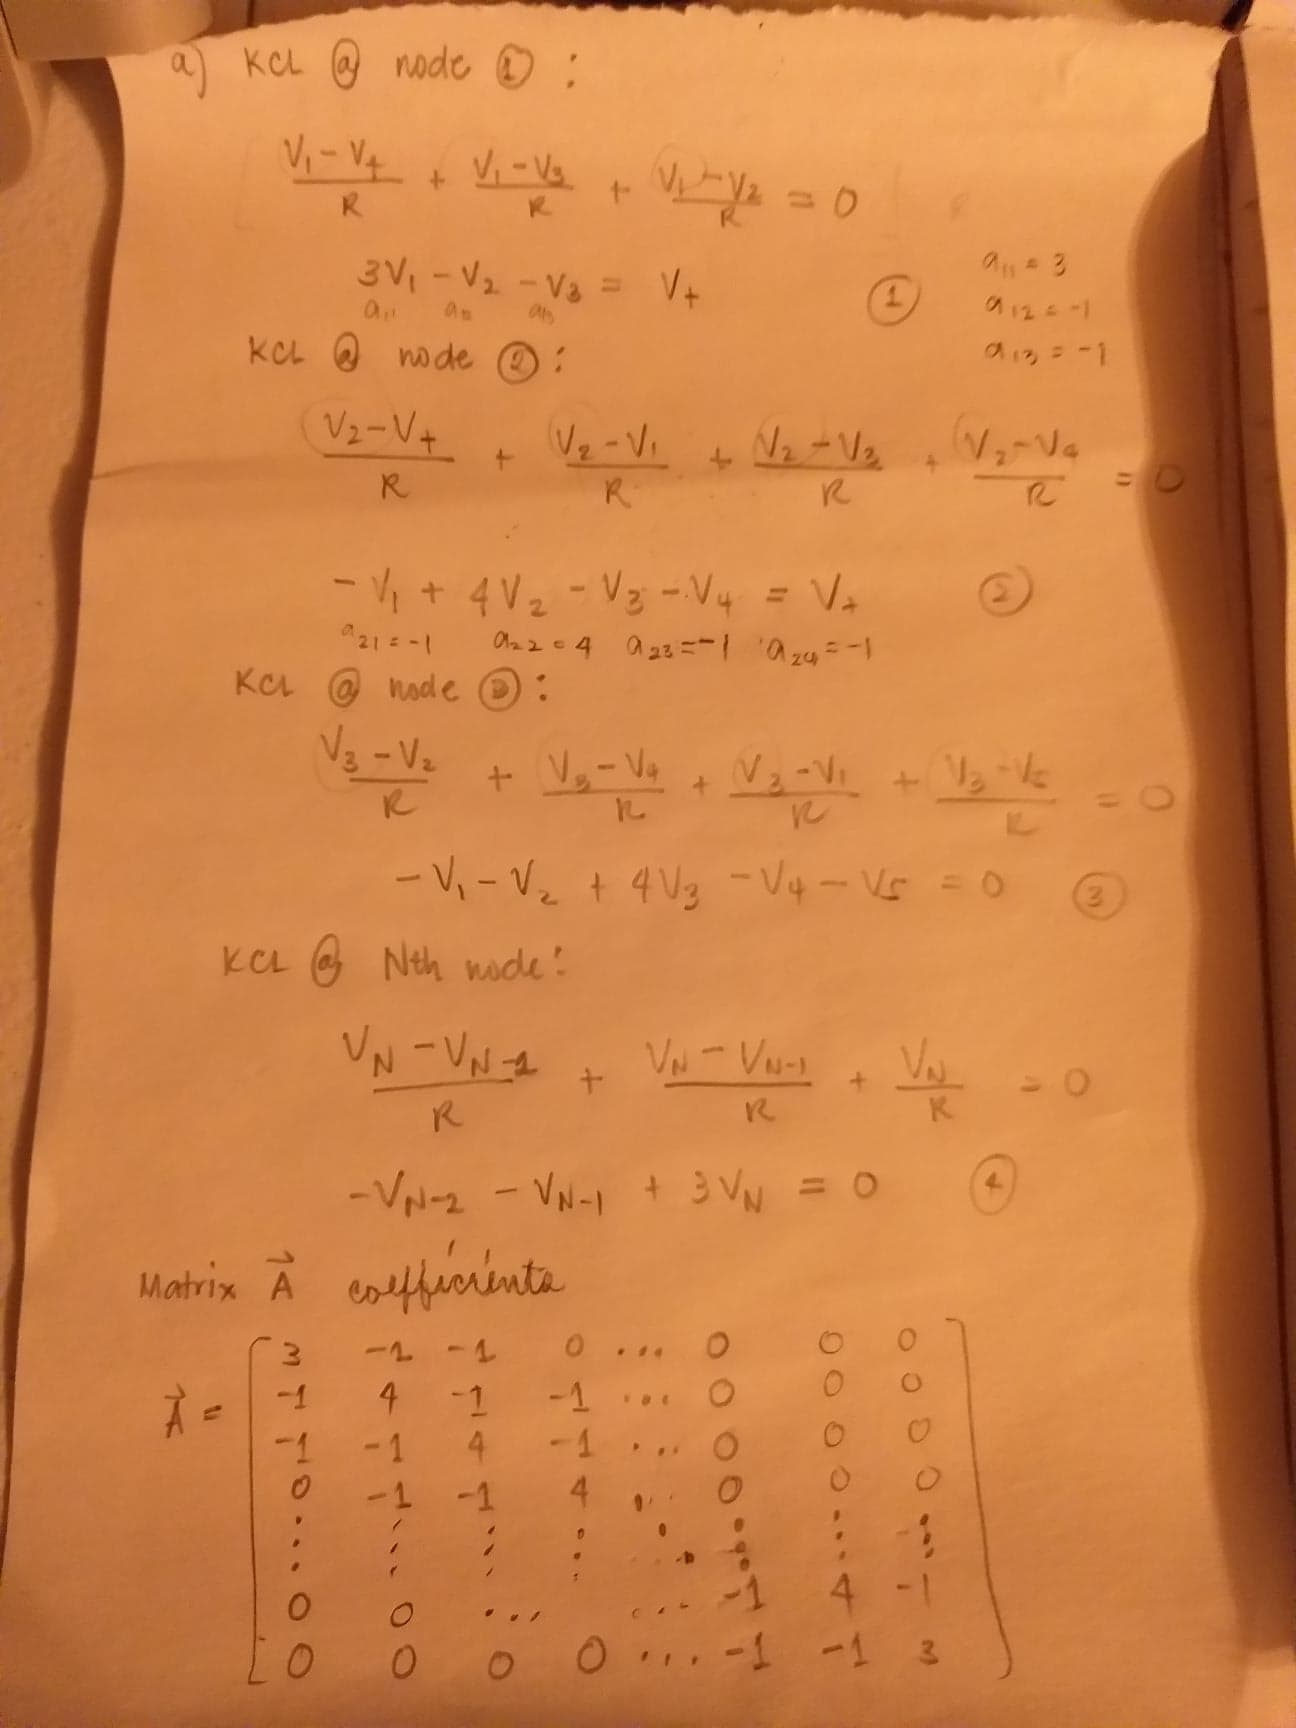 a) KCL @ node ①:
(V₁-V₊)/R + (V₁-V₃)/R + (V₁-V₂)/R = 0
3V₁ - V₂ - V₃ = V₊ ①
a₁₁ = 3
a₁₂ = -1
a₁₃ = -1
a₁₁ a₁₂ a₁₃
KCL @ node ②:
(V₂-V₊)/R + (V₂-V₁)/R + (V₂-V₃)/R + (V₂-V₄)/R = 0
-V₁ + 4V₂ - V₃ - V₄ = V₊ ②
a₂₁=-1 a₂₂=4 a₂₃=-1 a₂₄=-1
KCL @ node ③:
(V₃-V₂)/R + (V₃-V₄)/R + (V₃-V₁)/R + (V₃-V₅)/R = 0
-V₁ - V₂ + 4V₃ - V₄ - V₅ = 0 ③
KCL @ Nth node:
(V_N - V_{N-2})/R + (V_N - V_{N-1})/R + V_N/R = 0
-V_{N-2} - V_{N-1} + 3V_N = 0 ④
Matrix A⃗ coefficients
A⃗ =
3 -1 -1 0 ... 0 0 0
-1 4 -1 -1 ... 0 0 0
-1 -1 4 -1 ... 0 0 0
0 -1 -1 4 ... 0 0 0
0 0 ... ... -1 4 -1
0 0 0 0 ... -1 -1 3